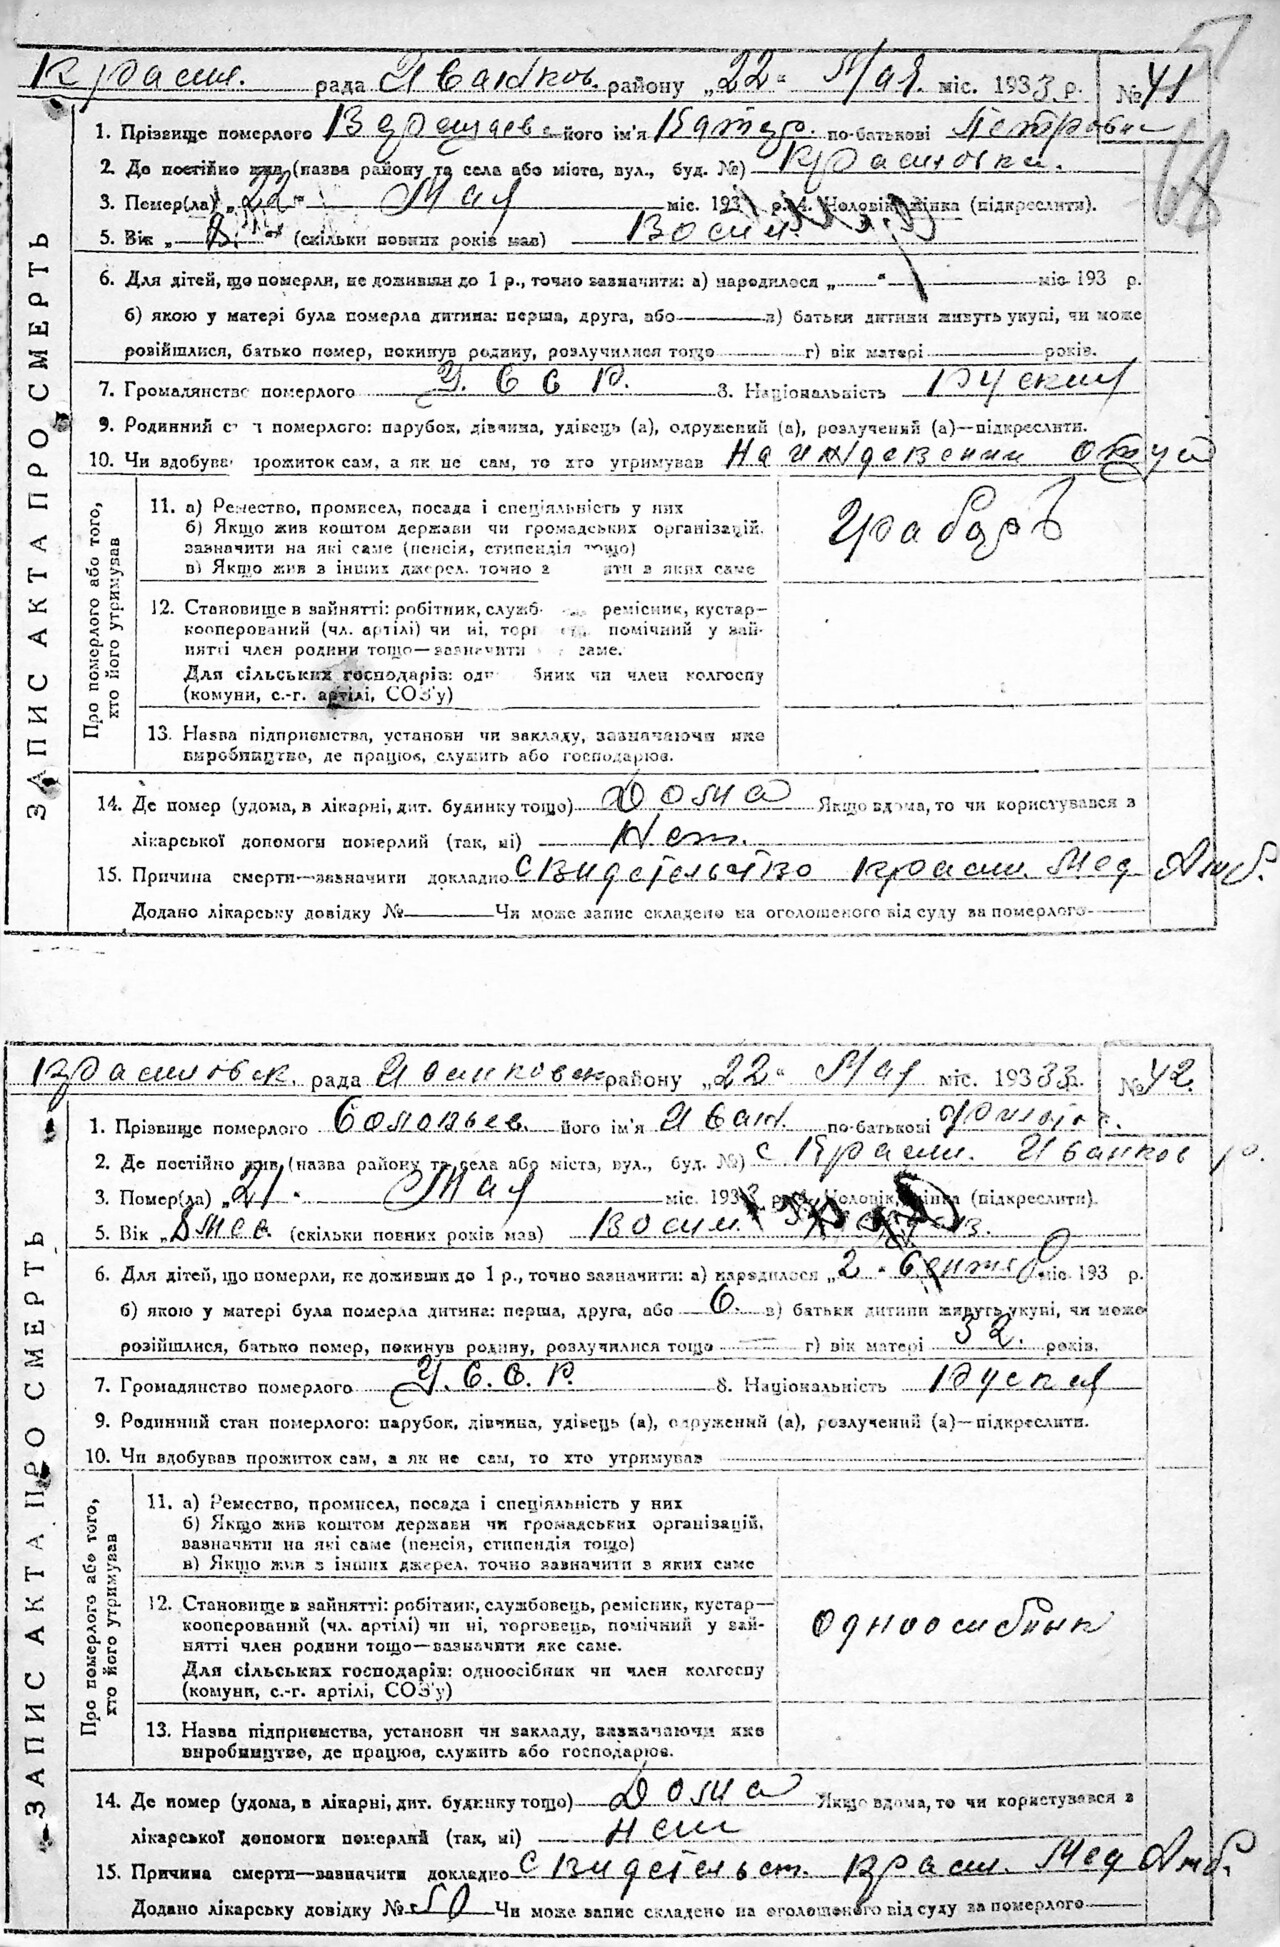 Красил. рада Иванков. району „22“ Мая. міс. 1933 р. № 41
1. Прізвище померлого його ім'я Катер. по-батькові Петровна
2. Де постійно жив (назва району та села або міста, вул., буд. №) Красиловка.
3. Помер(ла) „22“ Мая міс. 193 р. 4. Чоловік, жінка (підкреслити).
5. Вік „8.“ (скільки повних років мав) Восим.
6. Для дітей, що померли, не доживши до 1 р., точно зазначити: а) народилося „ “ міс. 193 р.
б) якою у матері була померла дитина: перша, друга, або в) батьки дитини живуть укупі, чи може
розійшлися, батько помер, покинув родину, розлучилися тощо г) вік матері років.
7. Громадянство померлого У. С С Р. 8. Національність Руския
9. Родинний с н померлого: парубок, дівчина, удівець (а), одружений (а), розлучений (а)—підкреслити.
10. Чи вдобува прожиток сам, а як не сам, то хто утримував На иждевении отца
ЗАПИС АКТА ПРО СМЕРТЬ
Про померлого або того, хто його утримував
11. а) Ремество, промисел, посада і спеціяльність у них
б) Якщо жив коштом держави чи громадських організацій,
зазначити на які саме (пенсія, стипендія тощо)
в) Якщо жив з інших джерел, точно з ити з яких саме
Грабарь
12. Становище в зайнятті: робітник, служб ремісник, кустар—
кооперований (чл. артілі) чи ні, торг помічний у зай-
нятті член родини тощо—зазначити саме.
Для сільських господарів: одн бник чи член колгоспу
(комуни, с.-г. артілі, СОЗ'у)
13. Назва підприємства, установи чи закладу, зазначаючи яке
виробництво, де працює, служить або господарює.
14. Де помер (удома, в лікарні, дит. будинку тощо) Дома Якщо вдома, то чи користувався з
лікарської допомоги померлий (так, ні) Нет.
15. Причина смерти—зазначити докладно Свидетельство Красил. Мед Амб.
Додано лікарську довідку № Чи може запис складено на оголошеного від суду за померлого
Красиловск. рада Иванковск району „22“ Мая міс. 1933 р. № 42.
1. Прізвище померлого Соловьев. його ім'я Иван. по-батькові
2. Де постійно жив (назва району та села або міста, вул., буд. №) с Красил. Иванков р.
3. Помер(ла) „21. Мая міс. 1933 р. 4. Чоловік, жінка (підкреслити).
5. Вік „8 мес. (скільки повних років мав) Восим
6. Для дітей, що померли, не доживши до 1 р., точно зазначити: а) народилося „2“ Сентяб. міс. 193 р.
б) якою у матері була померла дитина: перша, друга, або 6. в) батьки дитини живуть укупі, чи може
розійшлися, батько помер, покинув родину, розлучилися тощо г) вік матері 32. років.
7. Громадянство померлого У. С. С. Р. 8. Національність Руския
9. Родинний стан померлого: парубок, дівчина, удівець (а), одружений (а), розлучений (а)—підкреслити.
10. Чи вдобував прожиток сам, а як не сам, то хто утримував
ЗАПИС АКТА ПРО СМЕРТЬ
Про померлого або того, хто його утримував
11. а) Ремество, промисел, посада і спеціяльність у них
б) Якщо жив коштом держави чи громадських організацій,
зазначити на які саме (пенсія, стипендія тощо)
в) Якщо жив з інших джерел, точно зазначити з яких саме
12. Становище в зайнятті: робітник, службовець, ремісник, кустар—
кооперований (чл. артілі) чи ні, торговець, помічний у зай-
нятті член родини тощо—зазначити яке саме.
Для сільських господарів: одноосібник чи член колгоспу
(комуни, с.-г. артілі, СОЗ'у)
Одноосибник
13. Назва підприємства, установи чи закладу, зазначаючи яке
виробництво, де працює, служить або господарює.
14. Де помер (удома, в лікарні, дит. будинку тощо) Дома Якщо вдома, то чи користувався з
лікарської допомоги померлий (так, ні) Нет
15. Причина смерти—зазначити докладно Свидетельст. Красил. Мед Амб.
Додано лікарську довідку № 50 Чи може запис складено на оголошеного від суду за померлого